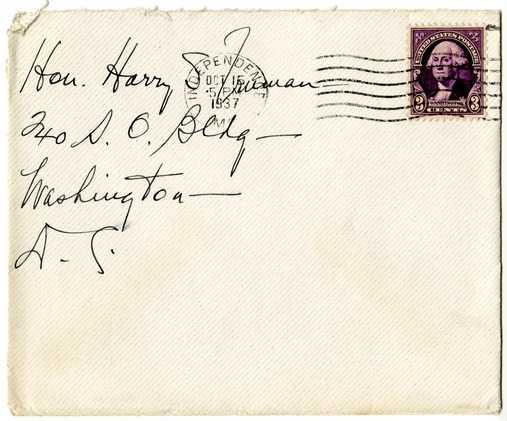 Hon. Harry S. Truman
INDEPENDENCE
OCT 15
5 PM
1937
MO
UNITED STATES POSTAGE
3 3
240 S. O. Bldg
Washington
D. C.